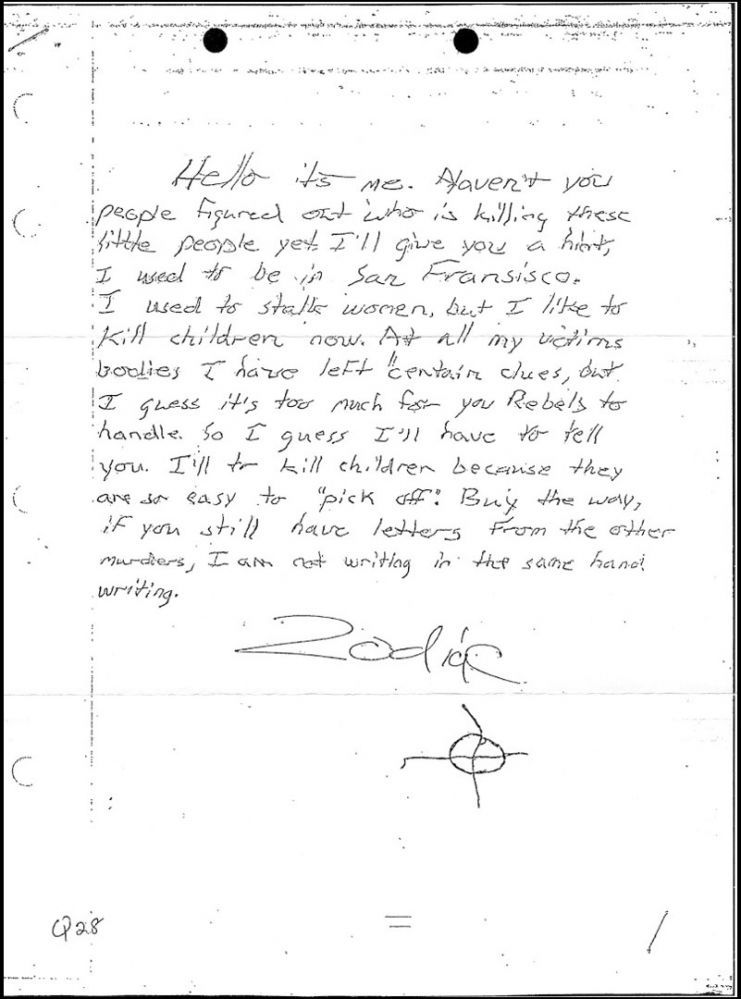 Hello it's me. Haven't you
people figured out who is killing these
little people yet? I'll give you a hint,
I used to be in San Fransisco.
I used to stalk women, but I like to
kill children now. At all my victims
bodies I have left "certain clues, but
I guess it's too much for you Rebels to
handle. So I guess I'll have to tell
you. I'll to kill children because they
are so easy to "pick off". Buy the way,
if you still have letters from the other
murders, I am not writing in the same hand
writing.
Zodiac
Q28